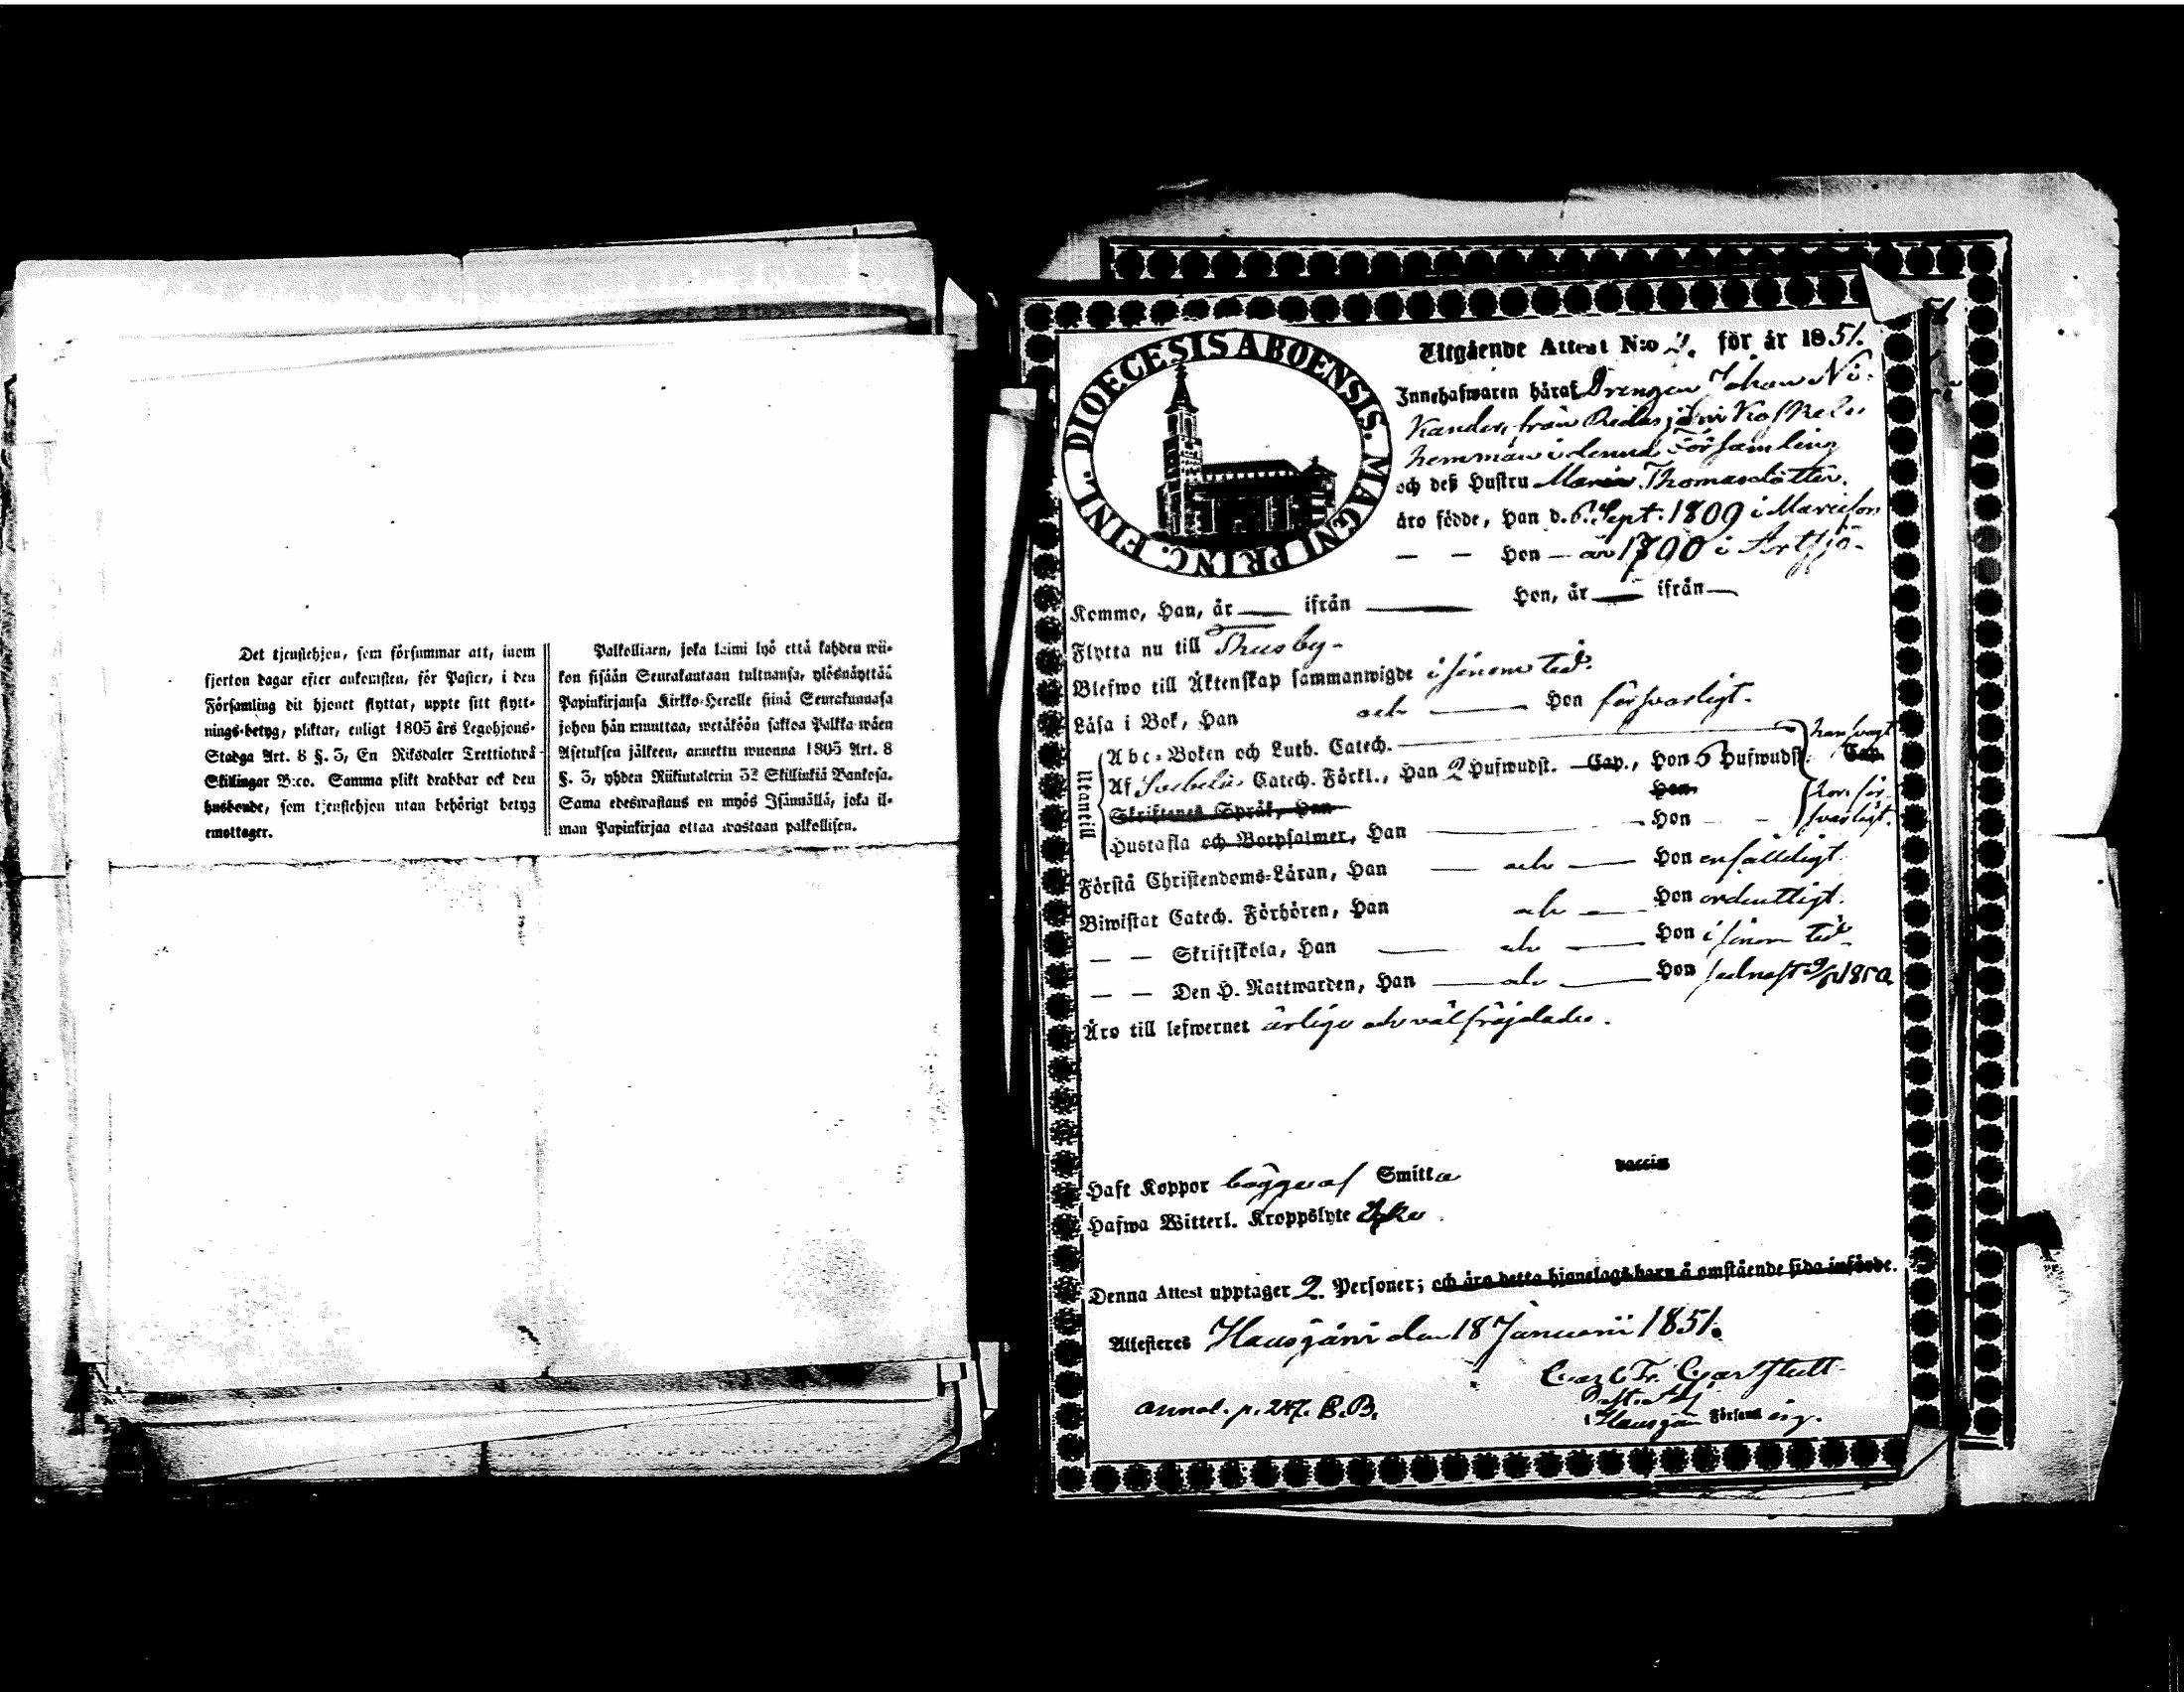 Det tjenstehjon, som försummar att, inom
fjorton dagar efter ankomsten, för Pastor, i den
Församling dit hjonet flyttat, uppte sitt flytt-
nings-betyg, pliktar, enligt 1805 års Legohjons-
Stadga Art. 8 §. 3, En Riksdaler Trettiotwå
Skillingar B:co. Samma plikt drabbar ock den
husbonde, som tjenstehjon utan behörigt betyg
emottager.
Palkollisen, joka laimi lyö että kahden wii-
kon sisään Seurakuntaan tultuansa, ylösnäyttää
Papinkirjansa Kirkko-Herralle siinä Seurakunnasa
johon hän muuttaa, wetäköön sakkoa Palkka-wäen
Asetuksen jälkeen, annettu wuonna 1805 Art. 8
§. 3, yhden Riikintalerin 32 Skillinkiä Bankosa.
Sama edeswastaus on myös Isännällä, joka il-
man Papinkirjaa ottaa wastaan palkollisen.
DIOECESIS ABOENSIS. MAGNI PRINC. FINL.
51
Utgående Attest N:o 2. för år 1851.
Innehafwaren häraf Drengen Johan Ni-
kander, från Ridasjärvi Koskela
hemman i denna Församling
och deß Hustru Maria Thomasdotter.
äro födde, Han d. 6 Sept. 1809 i
— — Hon — år 1790 i Artsjö-
Kommo, Han, år — ifrån — Hon, år — ifrån —
Flytta nu till Thusby-
Blefwo till Äktenskap sammanwigde i sinom tid.
Läsa i Bok, Han och — Hon försvarligt.
Utantill
Abc-Boken och Luth. Catech. — han svagt
Af Svebelii Catech. Förkl., Han 2 Hufwudst. Cap., Hon 6 Hufwudst. Cap.
Skriftenes Språk, Han Hon hon för-
Hustafla och Botpsalmer, Han — Hon — svarligt.
Förstå Christendoms-Läran, Han — och — Hon enfaldigt.
Biwistat Catech. Förhören, Han och — Hon ordentligt.
— — Skriftskola, Han — och — Hon i sinom tid
— — Den H. Nattwarden, Han — och — Hon sednast 1850
Äro till lefwernet ärliga och välfräjdade.
Haft Koppor bägge af Smitta vaccin
Hafwa Witterl. Kroppslyte Icke.
Denna Attest upptager 2. Personer; och äro detta hjonelags barn å omstående sida införde.
Attesteras Hausjärvi den 18 Januarii 1851.
Carl Fr.
annot. p. 247. B.B.
i Hausjärvi Församling.